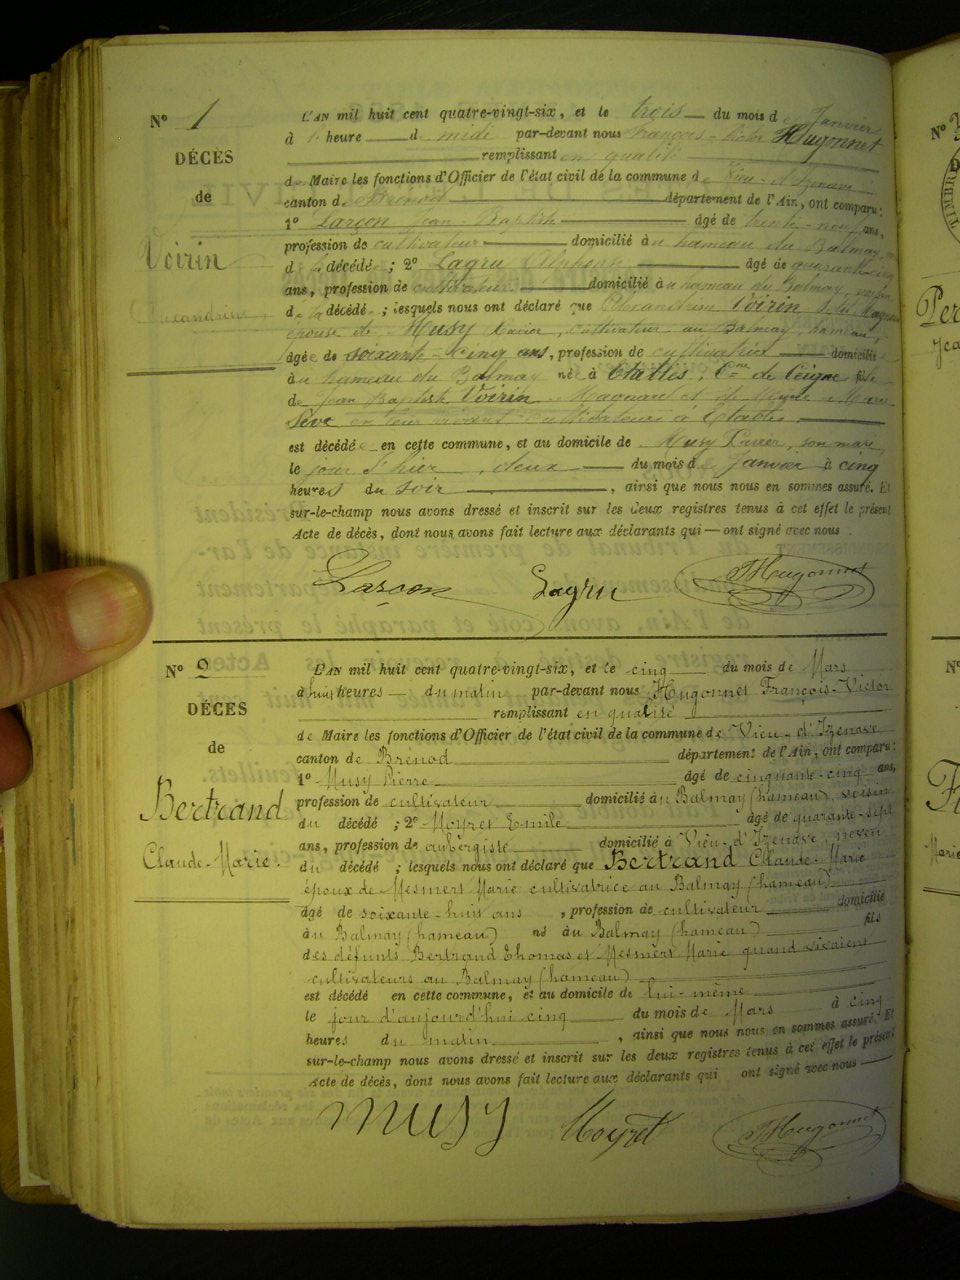 N° 1
DÉCÈS
de
Voirin
Alexandrine
L'AN mil huit cent quatre-vingt-six, et le trois du mois de Janvier
à heure de midi par-devant nous François-Victor Hugonnet
remplissant en qualité
de Maire les fonctions d'Officier de l'état civil de la commune de Vieu-d'Izenave
canton de Brénod département de l'Ain, ont comparu:
1° Larçon Jean-Baptiste âgé de trente-neuf ans,
profession de cultivateur domicilié au hameau du Balmay,
de la décédée; 2° Lagru Alphonse âgé de quarante-cinq
ans, profession de cultivateur domicilié au hameau du Balmay, voisin
de la décédée; lesquels nous ont déclaré que Alexandrine Voirin
épouse de Musy Xavier, cultivateur au Balmay hameau,
âgée de soixante-cinq ans, profession de cultivatrice domicilié
au hameau du Balmay né à Étables, Cne de Ceignes fille
de Jean Baptiste Voirin et de Marie
Sève en leur vivant cultivateurs à Étables
est décédée en cette commune, et au domicile de Musy Xavier, son mari
le jour d'hier, deux du mois de Janvier à cinq
heures du soir, ainsi que nous nous en sommes assuré. Et
sur-le-champ nous avons dressé et inscrit sur les deux registres tenus à cet effet le présent
Acte de décès, dont nous avons fait lecture aux déclarants qui — ont signé avec nous.
Larçon Lagru Hugonnet
N° 2
DÉCÈS
de
Bertrand
Claude-Marie.
L'AN mil huit cent quatre-vingt-six, et le cinq du mois de Mars
à huit heures — du matin par-devant nous Hugonnet François-Victor
remplissant en qualité
de Maire les fonctions d'Officier de l'état civil de la commune de Vieu-d'Izenave
canton de Brénod département de l'Ain, ont comparu:
1° Musy Pierre âgé de cinquante-cinq ans,
profession de cultivateur domicilié au Balmay (hameau), voisin
du décédé; 2° Moyret Emile âgé de quarante-sept
ans, profession de aubergiste domicilié à Vieu-d'Izenave, neveu
du décédé; lesquels nous ont déclaré que Bertrand Claude-Marie
époux de Mesmert Marie cultivatrice au Balmay (hameau)
âgé de soixante-huit ans, profession de cultivateur domicilié
au Balmay (hameau) né au Balmay (hameau) fils
des défunts Bertrand Thomas et Mesmert Marie quand vivaient
cultivateurs au Balmay (hameau)
est décédé en cette commune, et au domicile de lui-même
le jour d'aujourd'hui cinq du mois de Mars à cinq
heures du matin, ainsi que nous nous en sommes assuré. Et
sur-le-champ nous avons dressé et inscrit sur les deux registres tenus à cet effet le présent
Acte de décès, dont nous avons fait lecture aux déclarants qui ont signé avec nous
MUSY Moyret Hugonnet